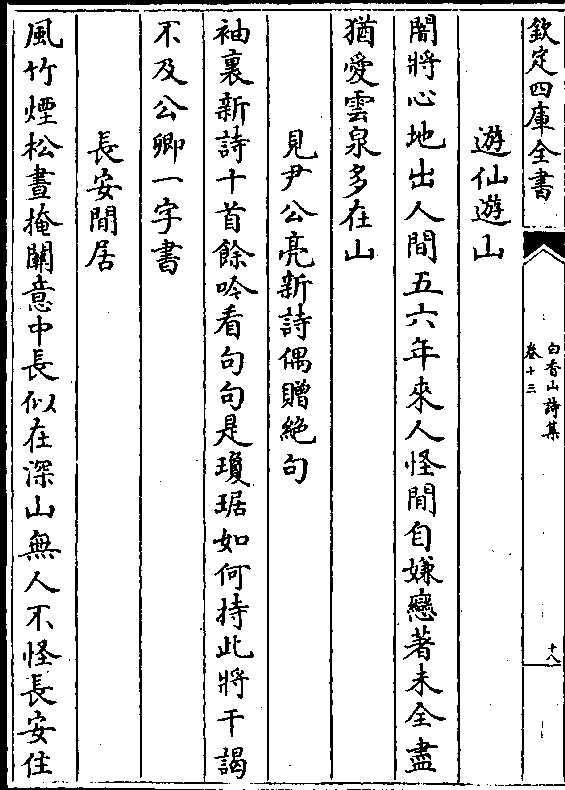 欽定四庫全書
白香山詩集
卷十三
十八
遊仙遊山
闇將心地出人間五六年來人怪閒自嫌戀著未全盡
猶愛雲泉多在山
見尹公亮新詩偶贈絶句
袖裏新詩十首餘吟看句句是瓊琚如何持此將干謁
不及公卿一字書
長安閒居
風竹煙松晝掩關意中長似在深山無人不怪長安住